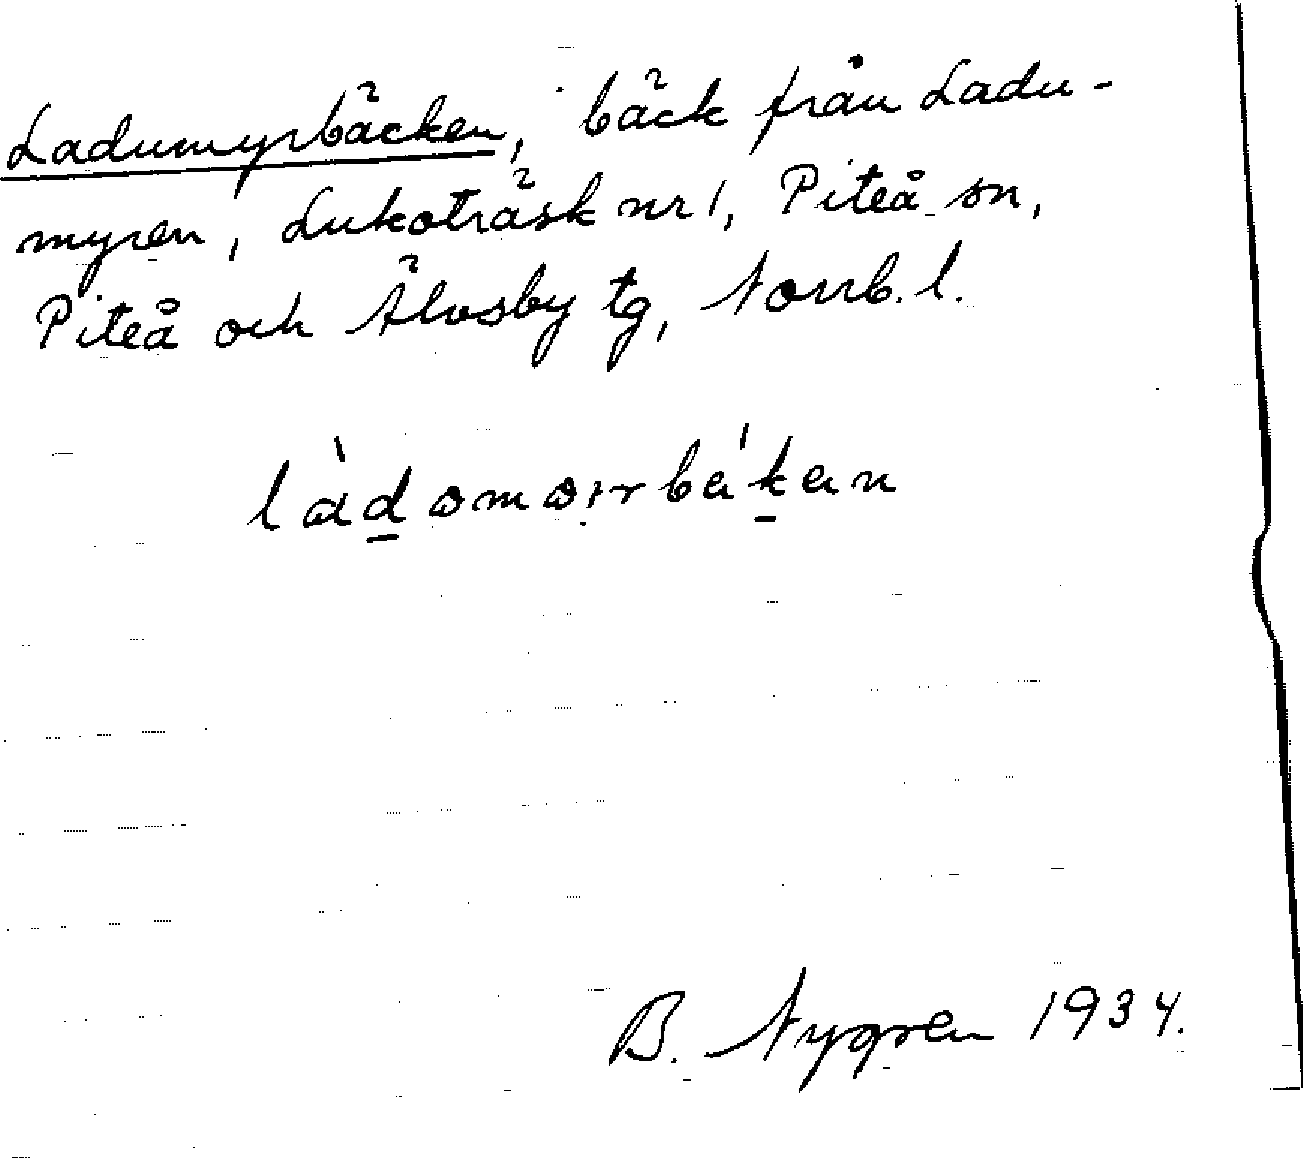 Ladumyrbäcken, bäck från Ladu-
myren, Lukoträsk nr 1, Piteå sn,
Piteå och Älvsby tg, Norrb. l.
B. Nygren 1934.